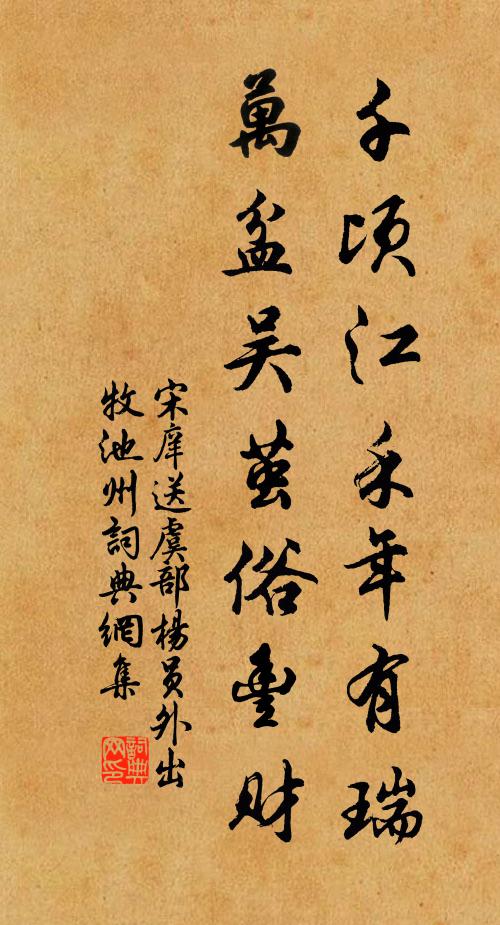 千頃江禾年有瑞
萬盆吴茧俗豐財
宋庠送虞部楊員外出
牧池州詞典網集
詞典网印